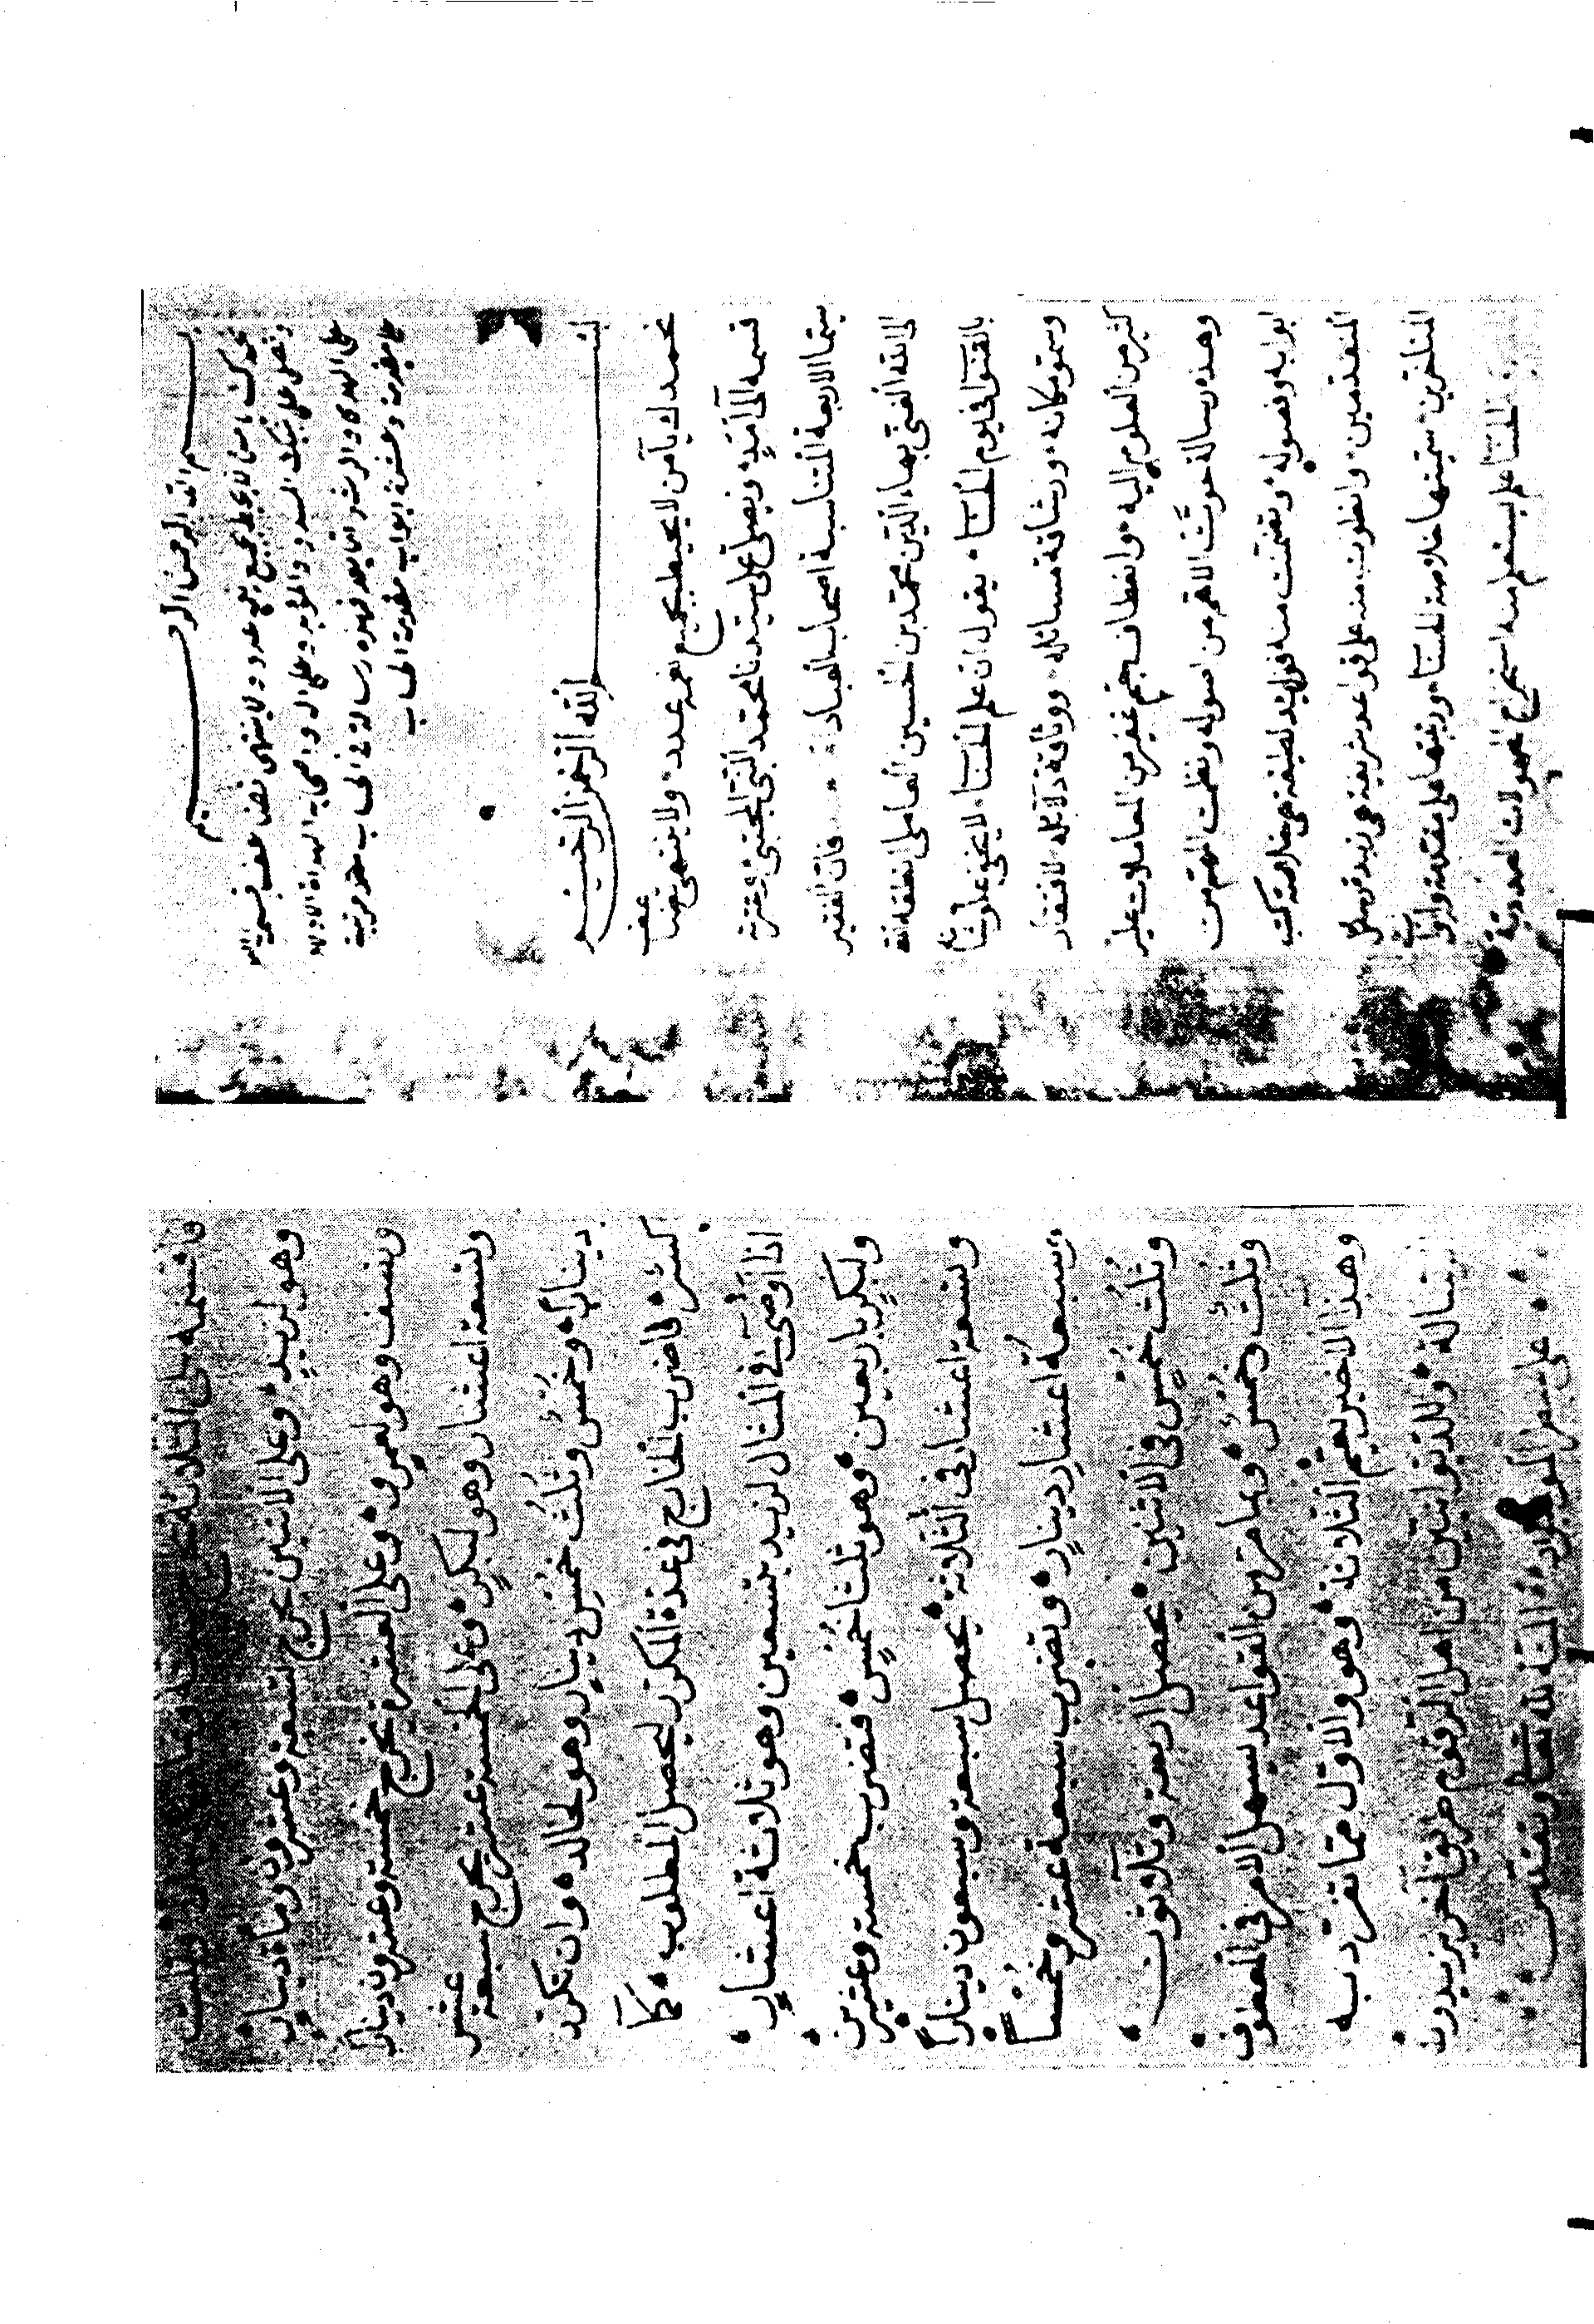 بسم الله الرحمن الرحيم
نحمدك يا من لا يحيط بجميع نعمه عدد ولا ينتهى تضاعف قسمه الى امد
ونصلى على نبيك السيد المؤيد وعلى اله واصحابه الهداة
على الهدى والرشد اما بعد فهذه رسالة فى الحساب مرتبة
على مقدمة وعشرة ابواب مقدمة الحساب
بسم الله الرحمن الرحيم
نحمدك يا من لا يحيط بجميع نعمه عدد ولا ينتهى تضاعف
قسمه الى أمد ونصلى على سيدنا محمد النبى المجتبى وعترته
سيما الاربعة المتناسبة اصحاب العباء فان الفقير
الى الله الغنى بهاء الدين محمد بن الحسين العاملى انطقه الله
بالصواب فى يوم الحساب يقول ان علم الحساب لا يخفى علو شانه
وسمو مكانه ورشاقة مسائله ووثاقة دلائله لافتقار
كثير من العلوم اليه وانعطاف جم غفير من المعاملات عليه
وهذه رسالة حوت الاهم من اصوله ونظمت المهم من
ابوابه وفصوله وتضمنت منه فوائد لطيفة هى خلاصة كتب
المتقدمين وانطوت منه على قواعد شريفة هى زبدة رسائل
المتاخرين سميتها خلاصة الحساب ورتبتها على مقدمة وابواب
الحساب علم يستعلم منه استخراج المجهولات العددية
فاقسمه على الثلاثة
وهو لزيد وعلى الاثنين يخرج تسعة وعشرون ومائة دينار
ونصف وهو لعمرو وعلى العشرة يخرج خمسة وعشرون دينارا
وتسعة اعشار وهو لبكر وعلى الخمسة عشر يخرج سبعة عشر
دينارا وخمس وثلث خمس دينار وهو لخالد وان تكرر
كسر فاضرب الخارج فى عدة المكرر ليحصل المطلوب كما
اذا أوصى فى المثال لزيد بتسعين وهو ثلاثة اعشار
ولبكر باربعين وهو ثلثا خمس فتضرب خمسة وعشرين
وتسعة اعشار فى الثلاثة يحصل سبعة وسبعون دينارا
وسبعة اعشار دينار وتضرب سبعة عشر وخمسا
وثلث خمس فى الاثنين يحصل اربعة وثلاثون
وثلث وخمس وبما مر من القواعد يسهل الامر فى المعطوف
وهذا الاخير يعم الثلاثة وهو والاول مما تفرد به
الرسالة وللديوانيين من اهل الرقوم طريق اخر يزيدون
على سعر الموجود